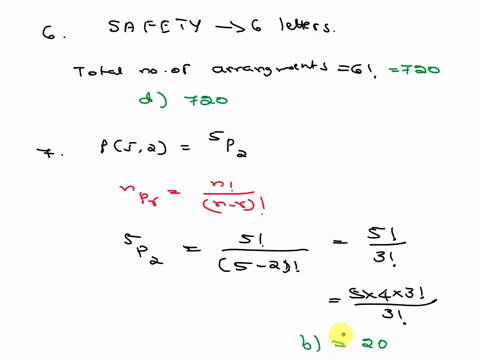 6. SAFETY → 6 letters.
Total no. of arrangments = 6! = 720
d) 720
7. P(5,2) = ⁵P₂
ⁿPᵣ = n!/(n-r)!
⁵P₂ = 5!/(5-2)! = 5!/3!
= 5×4×3!/3!
b) = 20